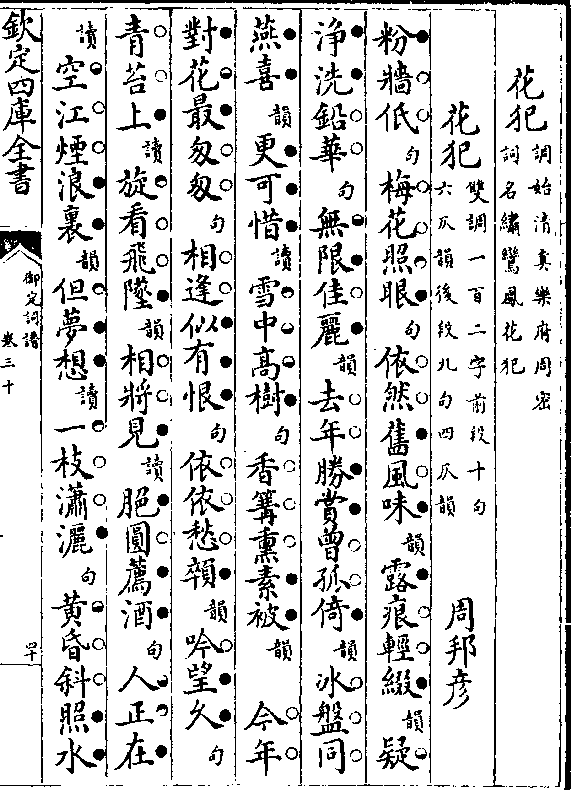 花犯調始清真樂府周密
詞名繡鸞鳳花犯
花犯雙調一百二字前段十句
六仄韻後段九句四仄韻
周邦彦
粉牆低句梅花照眼句依然舊風味韻露痕輕綴韻疑
浄洗鉛華句無限佳麗韻去年勝賞曾孤倚韻冰盤同
燕喜韻更可惜讀雪中髙樹句香篝熏素被韻今年
對花最匆匆句相逢似有恨句依依愁顇韻吟望久句
青苔上讀旋看飛墜韻相將見讀脃圓薦酒句人正在
讀空江煙浪裏韻但夢想讀一枝瀟灑句黄昏斜照水
欽定四庫全書
御定詞譜
卷三十
四十